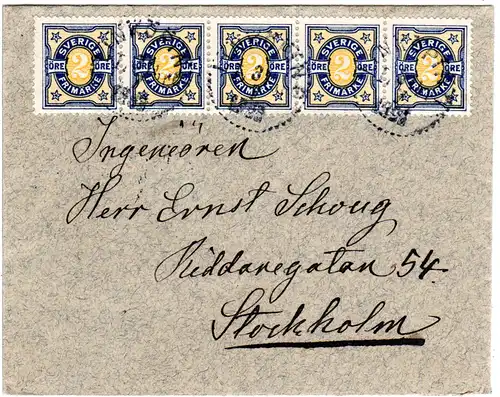 SVERIGE SVERIGE SVERIGE SVERIGE SVERIGE
ÖRE 2 ÖRE ÖRE 2 ÖRE ÖRE 2 ÖRE ÖRE 2 ÖRE ÖRE 2 ÖRE
FRIMÄRKE FRIMÄRKE FRIMÄRKE FRIMÄRKE FRIMÄRKE
Ingeniören
Herr Ernst Schoug
Riddaregatan 54.
Stockholm